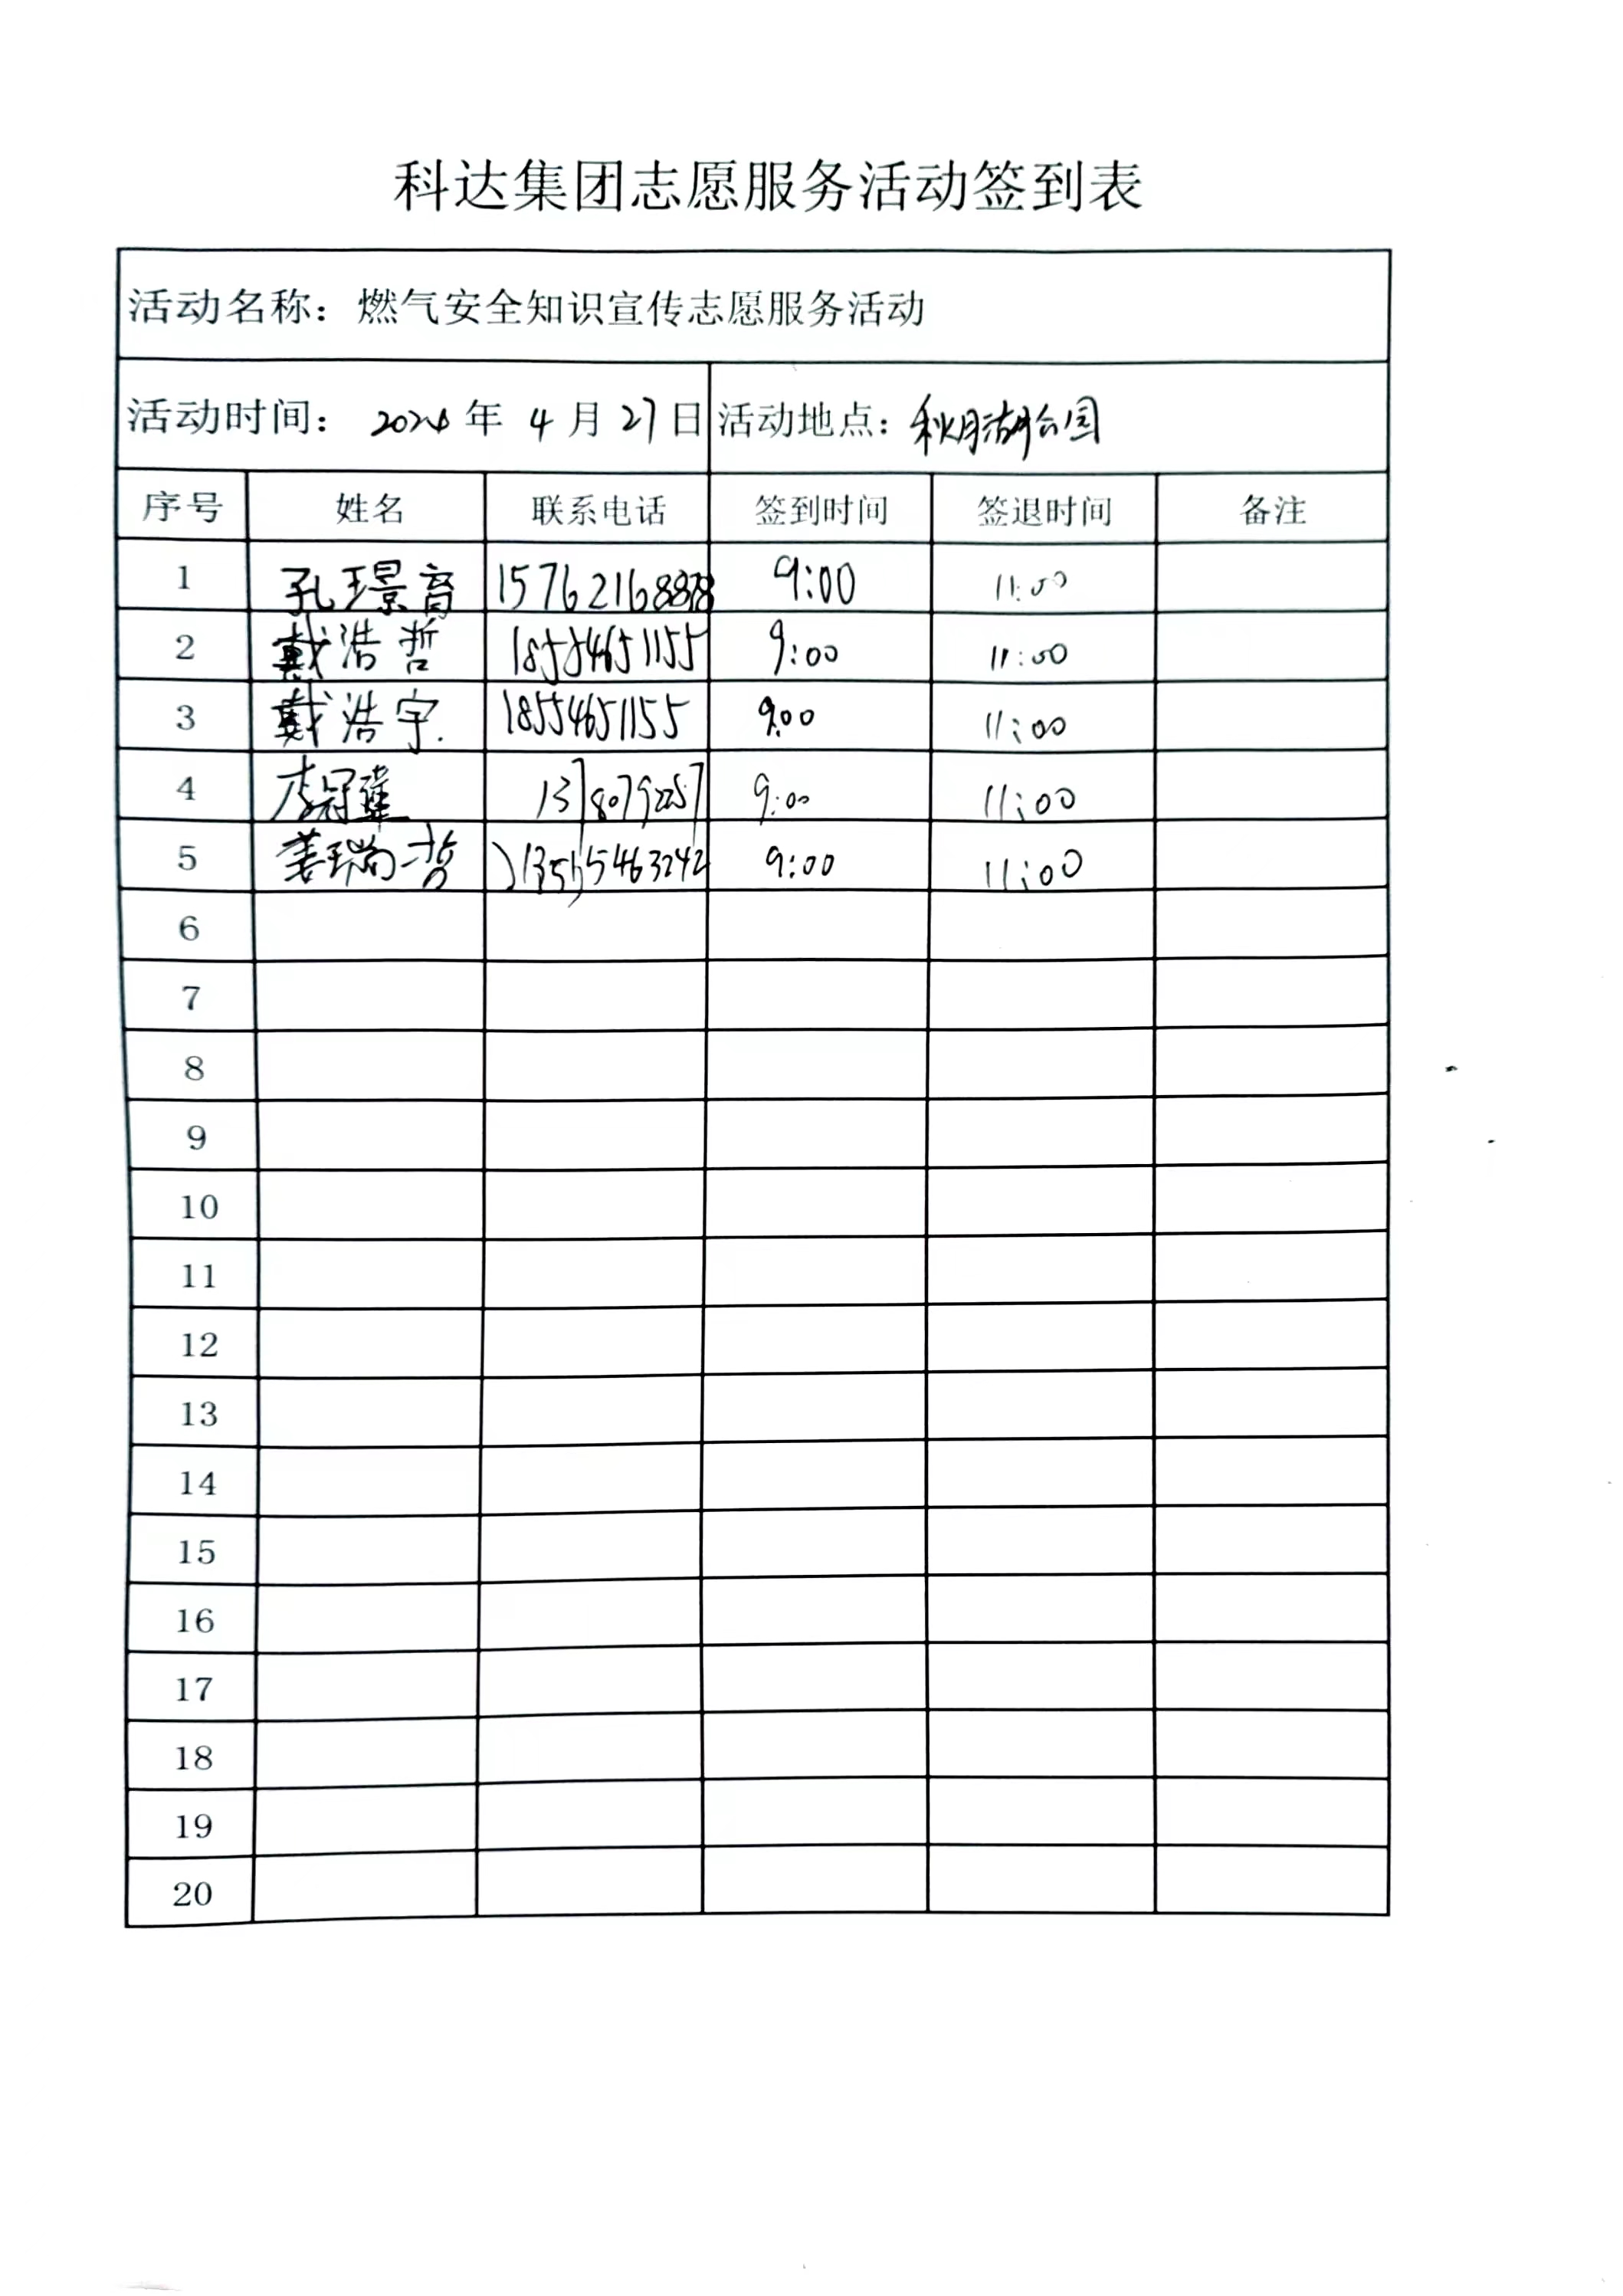 科达集团志愿服务活动签到表
活动名称：燃气安全知识宣传志愿服务活动
活动时间： 2024 年 4 月 27 日 活动地点：秋月湖公园
序号 姓名 联系电话 签到时间 签退时间 备注
1 孔璟育 15762168888 9:00 11:00
2 戴浩哲 18554651155 9:00 11:00
3 戴浩宇. 18554651155 9:00 11:00
4 李冠 9:00 11:00
5 姜瑞哲 9:00 11:00
6
7
8
9
10
11
12
13
14
15
16
17
18
19
20